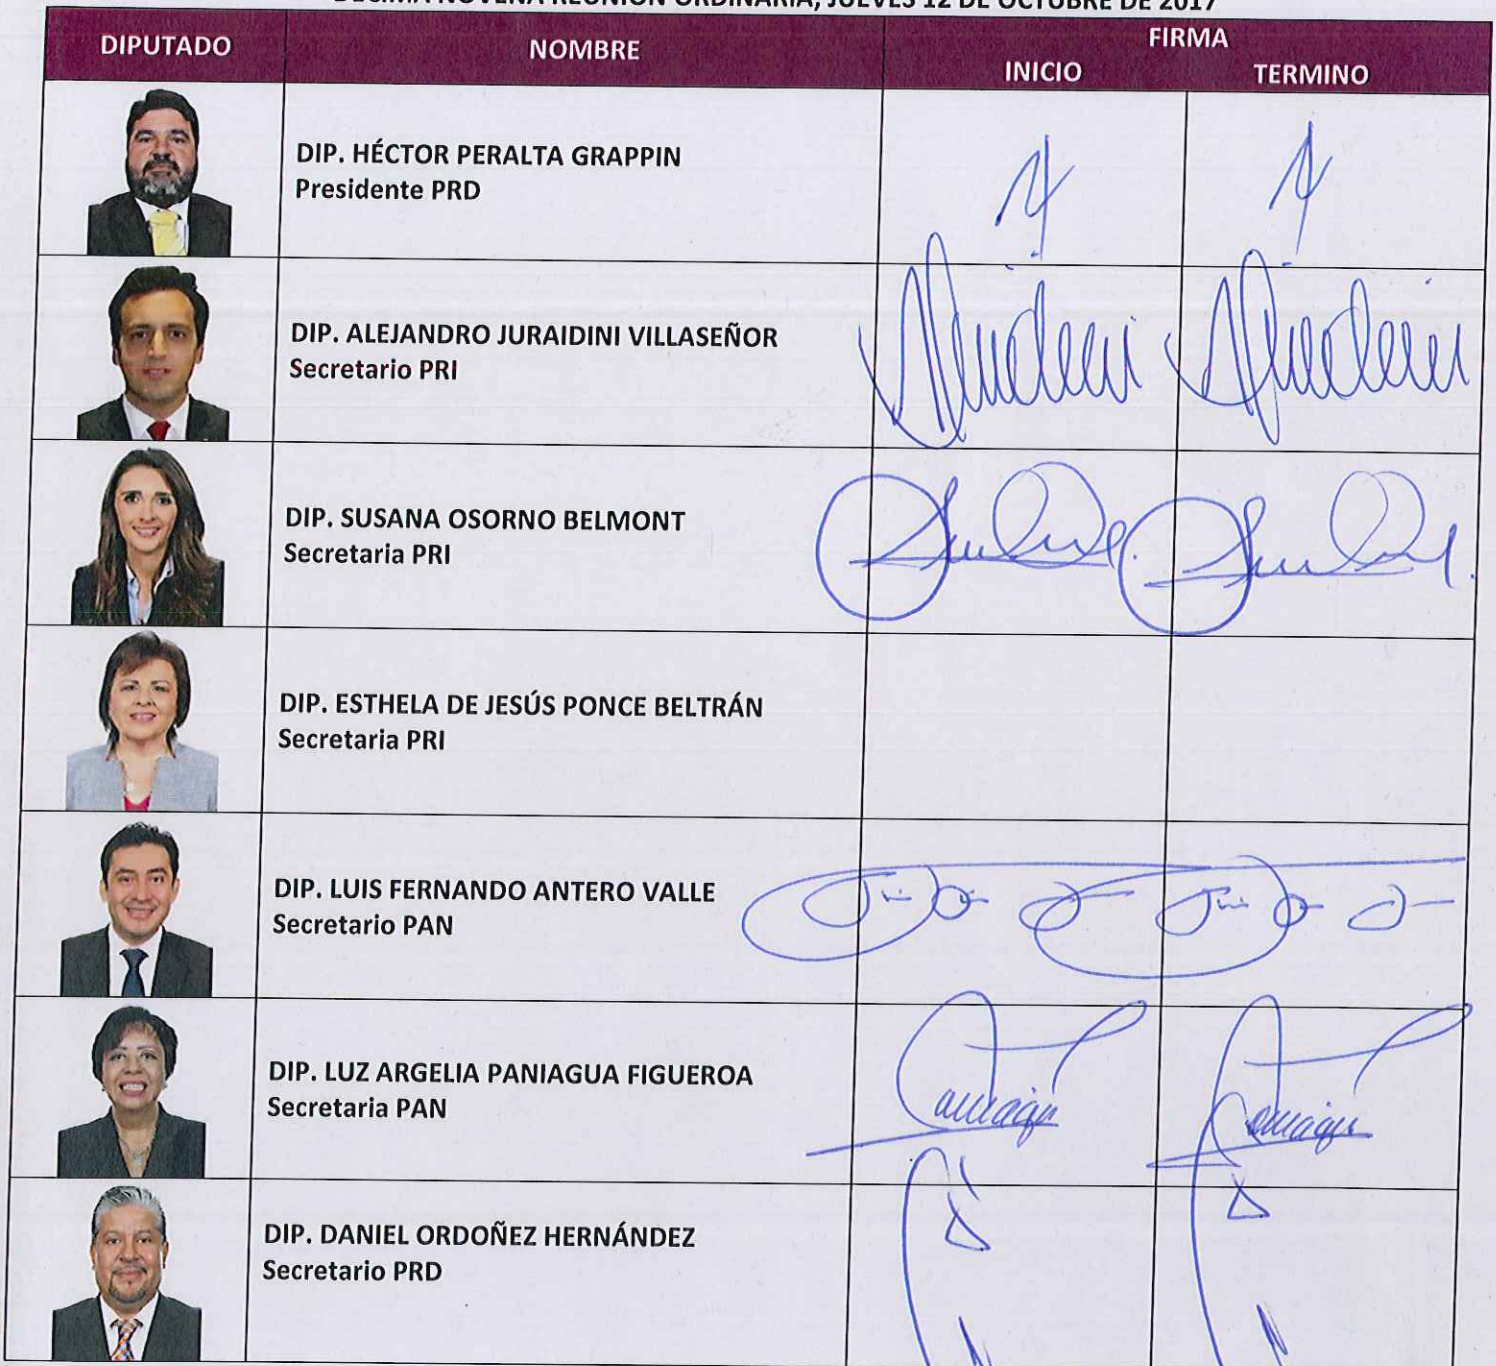 DÉCIMA NOVENA REUNIÓN ORDINARIA, JUEVES 12 DE OCTUBRE DE 2017
DIPUTADO NOMBRE FIRMA
INICIO TERMINO
DIP. HÉCTOR PERALTA GRAPPIN
Presidente PRD
DIP. ALEJANDRO JURAIDINI VILLASEÑOR
Secretario PRI
DIP. SUSANA OSORNO BELMONT
Secretaria PRI
DIP. ESTHELA DE JESÚS PONCE BELTRÁN
Secretaria PRI
DIP. LUIS FERNANDO ANTERO VALLE
Secretario PAN
DIP. LUZ ARGELIA PANIAGUA FIGUEROA
Secretaria PAN
DIP. DANIEL ORDOÑEZ HERNÁNDEZ
Secretario PRD